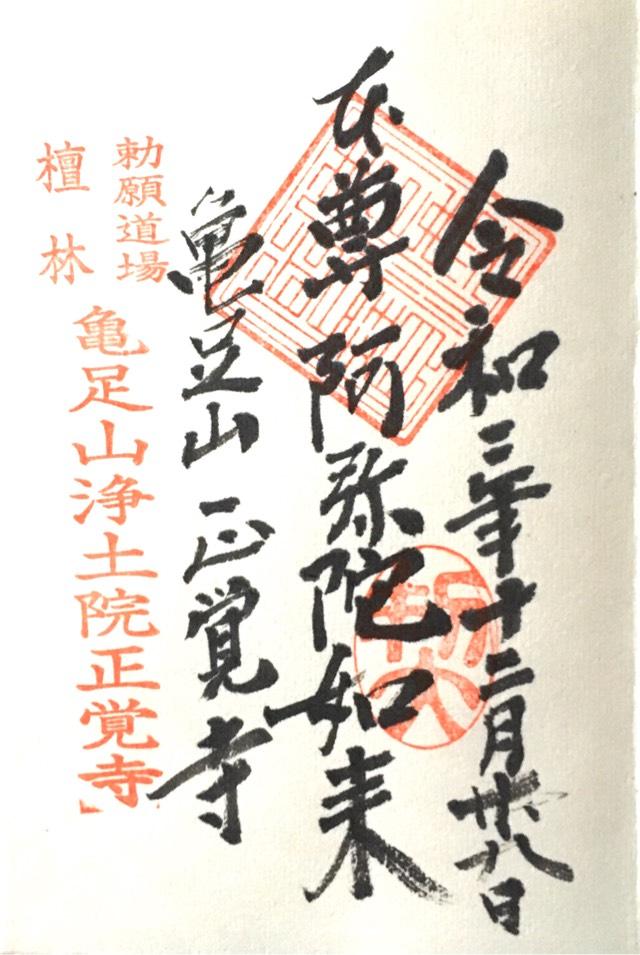 令和三年十二月廿八日
本尊 阿弥陀如来
亀足山 正覚寺
勅願道場
檀林
亀足山浄土院正覚寺